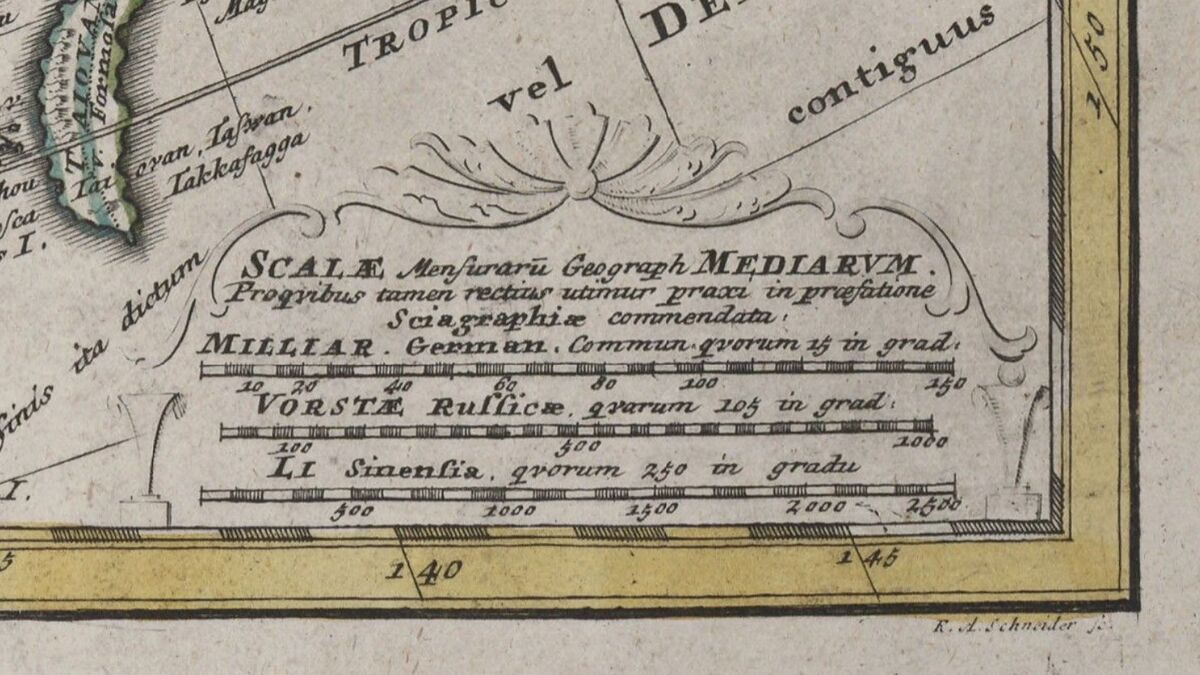 TROPIC
DE
vel
contiguus
150
TAIOVAN
v. Formosa
Tai ovan, Taswan.
Takkafagga
I.
ita dictum
Sinis
I.
SCALÆ Mensurarū Geograph MEDIARVM.
Proqvibus tamen rectius utimur praxi in præfatione
Sciagraphiæ commendata:
MILLIAR. German. Commun. qvorum 15 in grad:
10 20 40 60 80 100 150
VORSTÆ Russicæ, qvarum 105 in grad:
100 500 1000
LI Sinensia, qvorum 250 in gradu
500 1000 1500 2000 2500
5 140 145
R. A. Schneider sc.